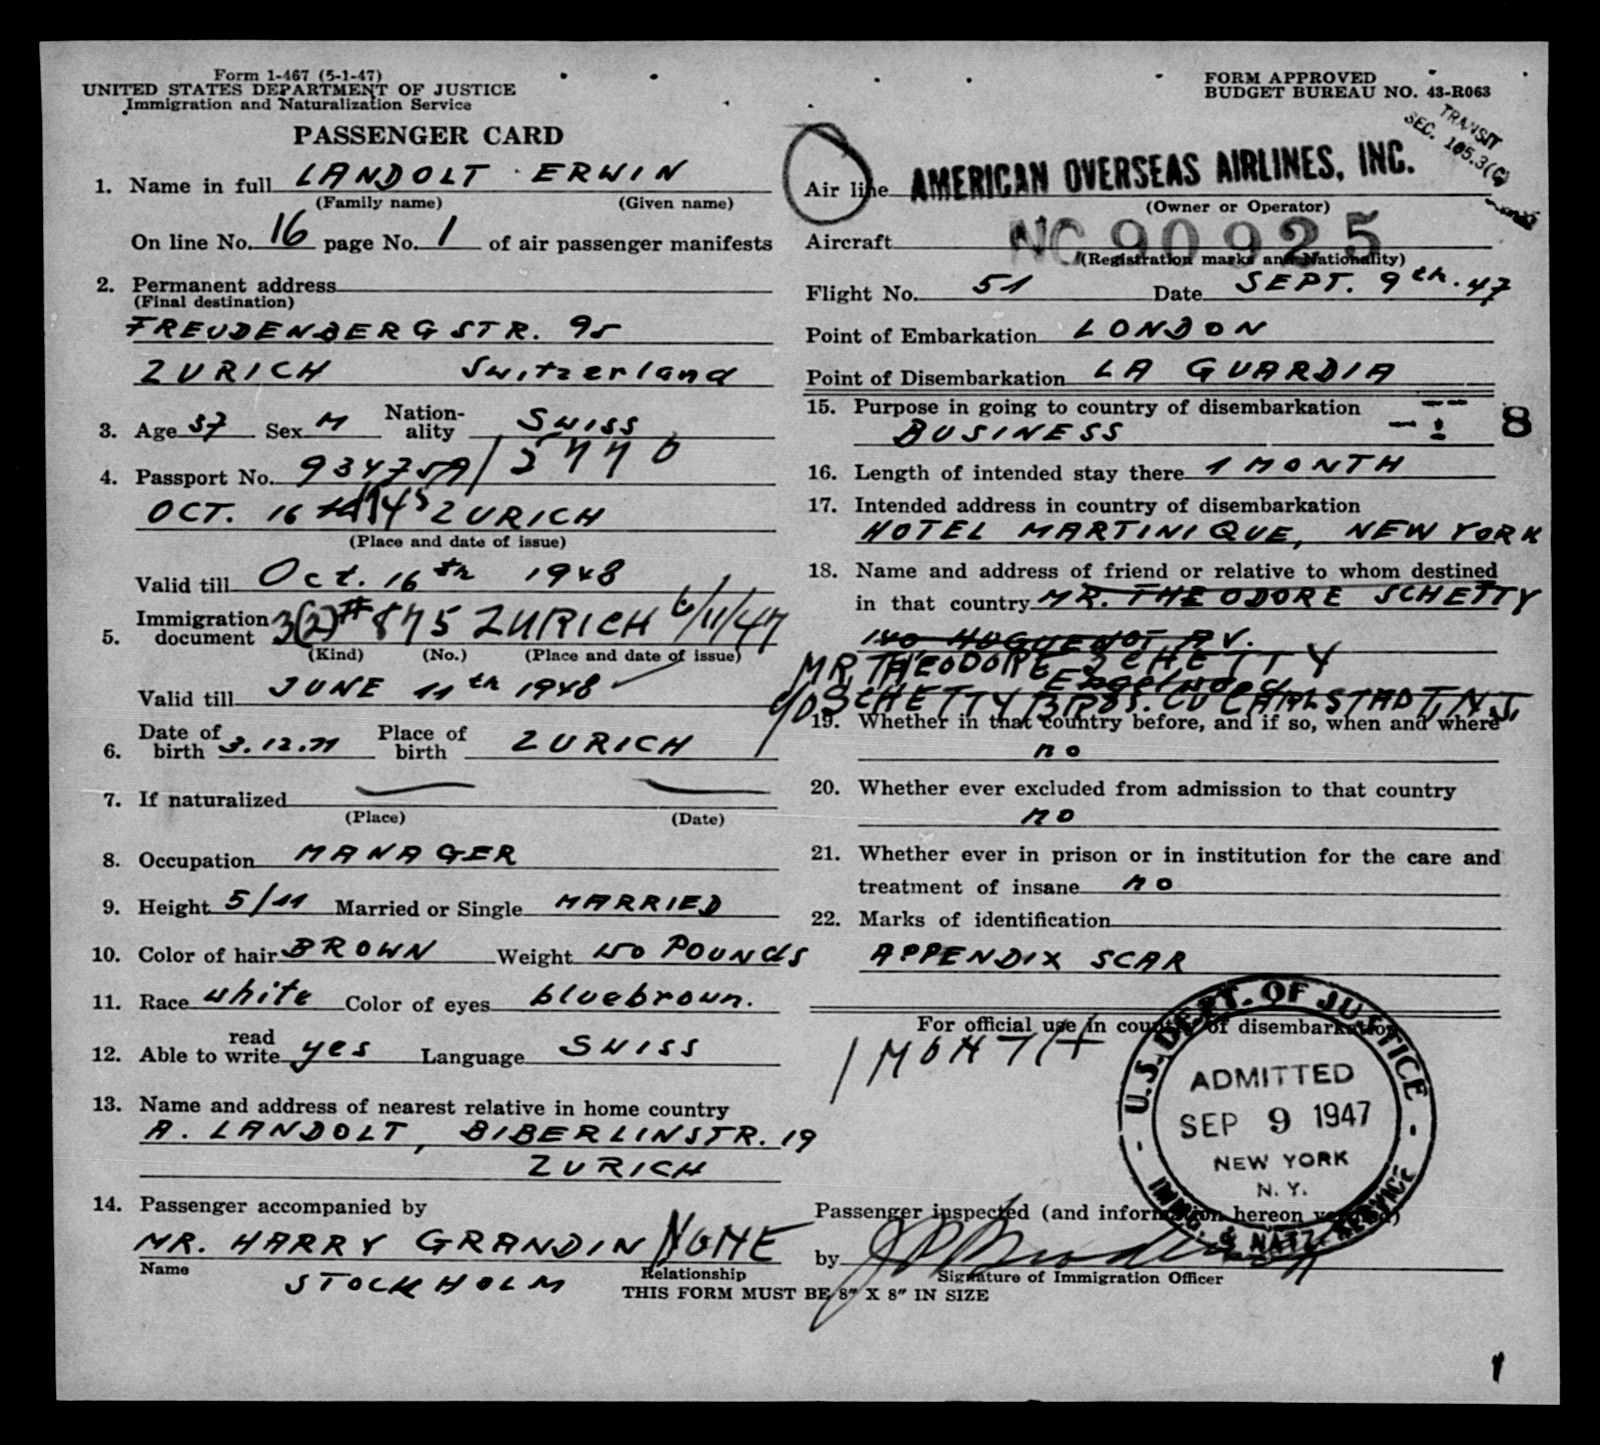 Form I-467 (5-1-47)
UNITED STATES DEPARTMENT OF JUSTICE
Immigration and Naturalization Service
PASSENGER CARD
1. Name in full LANDOLT ERWIN
(Family name) (Given name)
On line No. 16 page No. 1 of air passenger manifests
2. Permanent address
(Final destination)
FREUDENBERGSTR. 95
ZURICH Switzerland
3. Age 37 Sex M Nation-ality SWISS
4. Passport No. 934758A/5770
OCT. 16th 1945 ZURICH
(Place and date of issue)
Valid till Oct. 16th 1948
5. Immigration document 3(2)# 875 ZURICH 6/11/47
(Kind) (No.) (Place and date of issue)
Valid till JUNE 11th 1948
6. Date of birth 3.12.11 Place of birth ZURICH
7. If naturalized
(Place) (Date)
8. Occupation MANAGER
9. Height 5/11 Married or Single MARRIED
10. Color of hair BROWN Weight 150 POUNDS
11. Race white Color of eyes bluebroun.
12. Able to read write yes Language SWISS
13. Name and address of nearest relative in home country
A. LANDOLT, BIBERLINSTR. 19
ZURICH
14. Passenger accompanied by
MR. HARRY GRANDIN NONE
Name Relationship
STOCKHOLM
THIS FORM MUST BE 8" X 8" IN SIZE
FORM APPROVED
BUDGET BUREAU NO. 43-R063
TRANSIT
SEC. 105.3(G)
Air line AMERICAN OVERSEAS AIRLINES, INC.
(Owner or Operator)
Aircraft NC 90925
(Registration marks and Nationality)
Flight No. 51 Date SEPT. 9th. 47
Point of Embarkation LONDON
Point of Disembarkation LA GUARDIA
15. Purpose in going to country of disembarkation
BUSINESS
8
16. Length of intended stay there 1 MONTH
17. Intended address in country of disembarkation
HOTEL MARTINIQUE, NEW YORK
18. Name and address of friend or relative to whom destined
in that country MR. THEODORE SCHETTY
140 HUGUENOT AV.
MR. THEODORE SCHETTY
Engelwood
C/O SCHETTY BROS. CO CARLSTADT, N.J.
19. Whether in that country before, and if so, when and where
no
20. Whether ever excluded from admission to that country
no
21. Whether ever in prison or in institution for the care and
treatment of insane no
22. Marks of identification
APPENDIX SCAR
For official use in country of disembarkation
1 MONTH
U.S. DEPT. OF JUSTICE
ADMITTED
SEP 9 1947
NEW YORK
N. Y.
IMMIG. & NATZ. SERVICE
Passenger inspected (and information hereon verified)
by
Signature of Immigration Officer
1